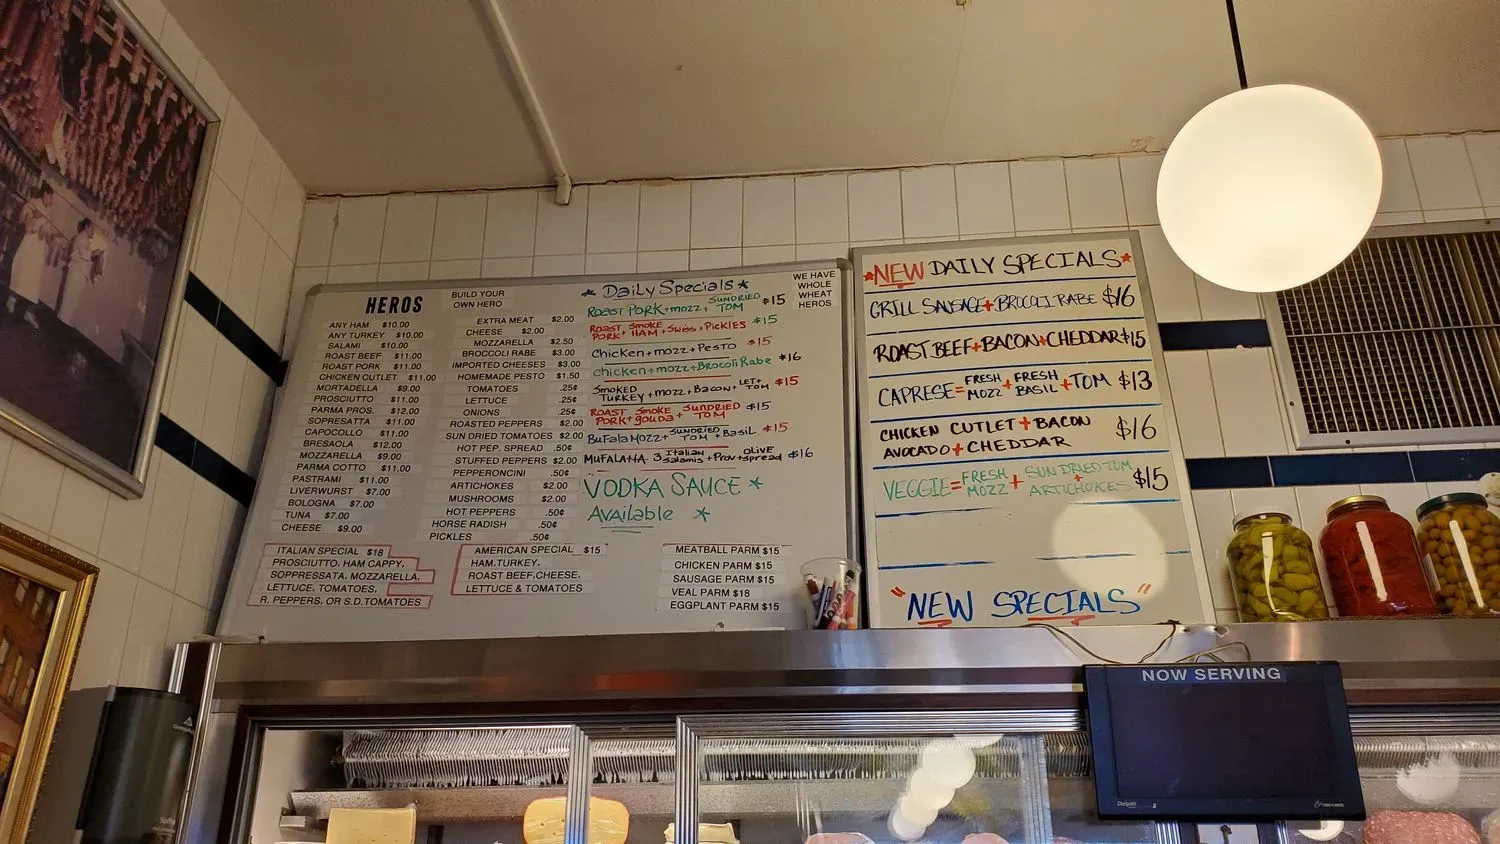 HEROS
ANY HAM $10.00
ANY TURKEY $10.00
SALAMI $10.00
ROAST BEEF $11.00
ROAST PORK $11.00
CHICKEN CUTLET $11.00
MORTADELLA $9.00
PROSCIUTTO $11.00
PARMA PROS. $12.00
SOPRESATTA $11.00
CAPOCOLLO $11.00
BRESAOLA $12.00
MOZZARELLA $9.00
PARMA COTTO $11.00
PASTRAMI $11.00
LIVERWURST $7.00
BOLOGNA $7.00
TUNA $7.00
CHEESE $9.00
ITALIAN SPECIAL $18
PROSCIUTTO, HAM CAPPY,
SOPPRESSATA, MOZZARELLA,
LETTUCE, TOMATOES,
R. PEPPERS, OR S.D.TOMATOES
BUILD YOUR
OWN HERO
EXTRA MEAT $2.00
CHEESE $2.00
MOZZARELLA $2.50
BROCCOLI RABE $3.00
IMPORTED CHEESES $3.00
HOMEMADE PESTO $1.50
TOMATOES .25¢
LETTUCE .25¢
ONIONS .25¢
ROASTED PEPPERS $2.00
SUN DRIED TOMATOES $2.00
HOT PEP. SPREAD .50¢
STUFFED PEPPERS $2.00
PEPPERONCINI .50¢
ARTICHOKES $2.00
MUSHROOMS $2.00
HOT PEPPERS .50¢
HORSE RADISH .50¢
PICKLES .50¢
AMERICAN SPECIAL $15
HAM,TURKEY,
ROAST BEEF,CHEESE,
LETTUCE & TOMATOES
★ Daily Specials ★
ROAST PORK+MOZZ+ SUNDRIED TOM $15
ROAST PORK+ Smoke HAM+Swiss+Pickles $15
Chicken+mozz+Pesto $15
chicken+mozz+Brocoli Rabe $16
Smoked TURKEY+mozz+Bacon+ LET+ TOM $15
ROAST PORK+ Smoke gouda+ SUNDRIED TOM $15
BuFala Mozz+ SUNDRIED TOM +Basil $15
MUFALATTA 3 Italian Salamis +Prov+ olive spread $16
VODKA SAUCE ★
Available ★
MEATBALL PARM $15
CHICKEN PARM $15
SAUSAGE PARM $15
VEAL PARM $18
EGGPLANT PARM $15
WE HAVE
WHOLE
WHEAT
HEROS
★NEW DAILY SPECIALS★
GRILL SAUSAGE+BROCOLI RABE $16
ROAST BEEF+BACON+CHEDDAR $15
CAPRESE= FRESH MOZZ + FRESH BASIL + TOM $13
CHICKEN CUTLET + BACON
AVOCADO + CHEDDAR $16
VEGGIE= FRESH MOZZ + SUNDRIED TOM + ARTICHOKES $15
"NEW SPECIALS"
NOW SERVING